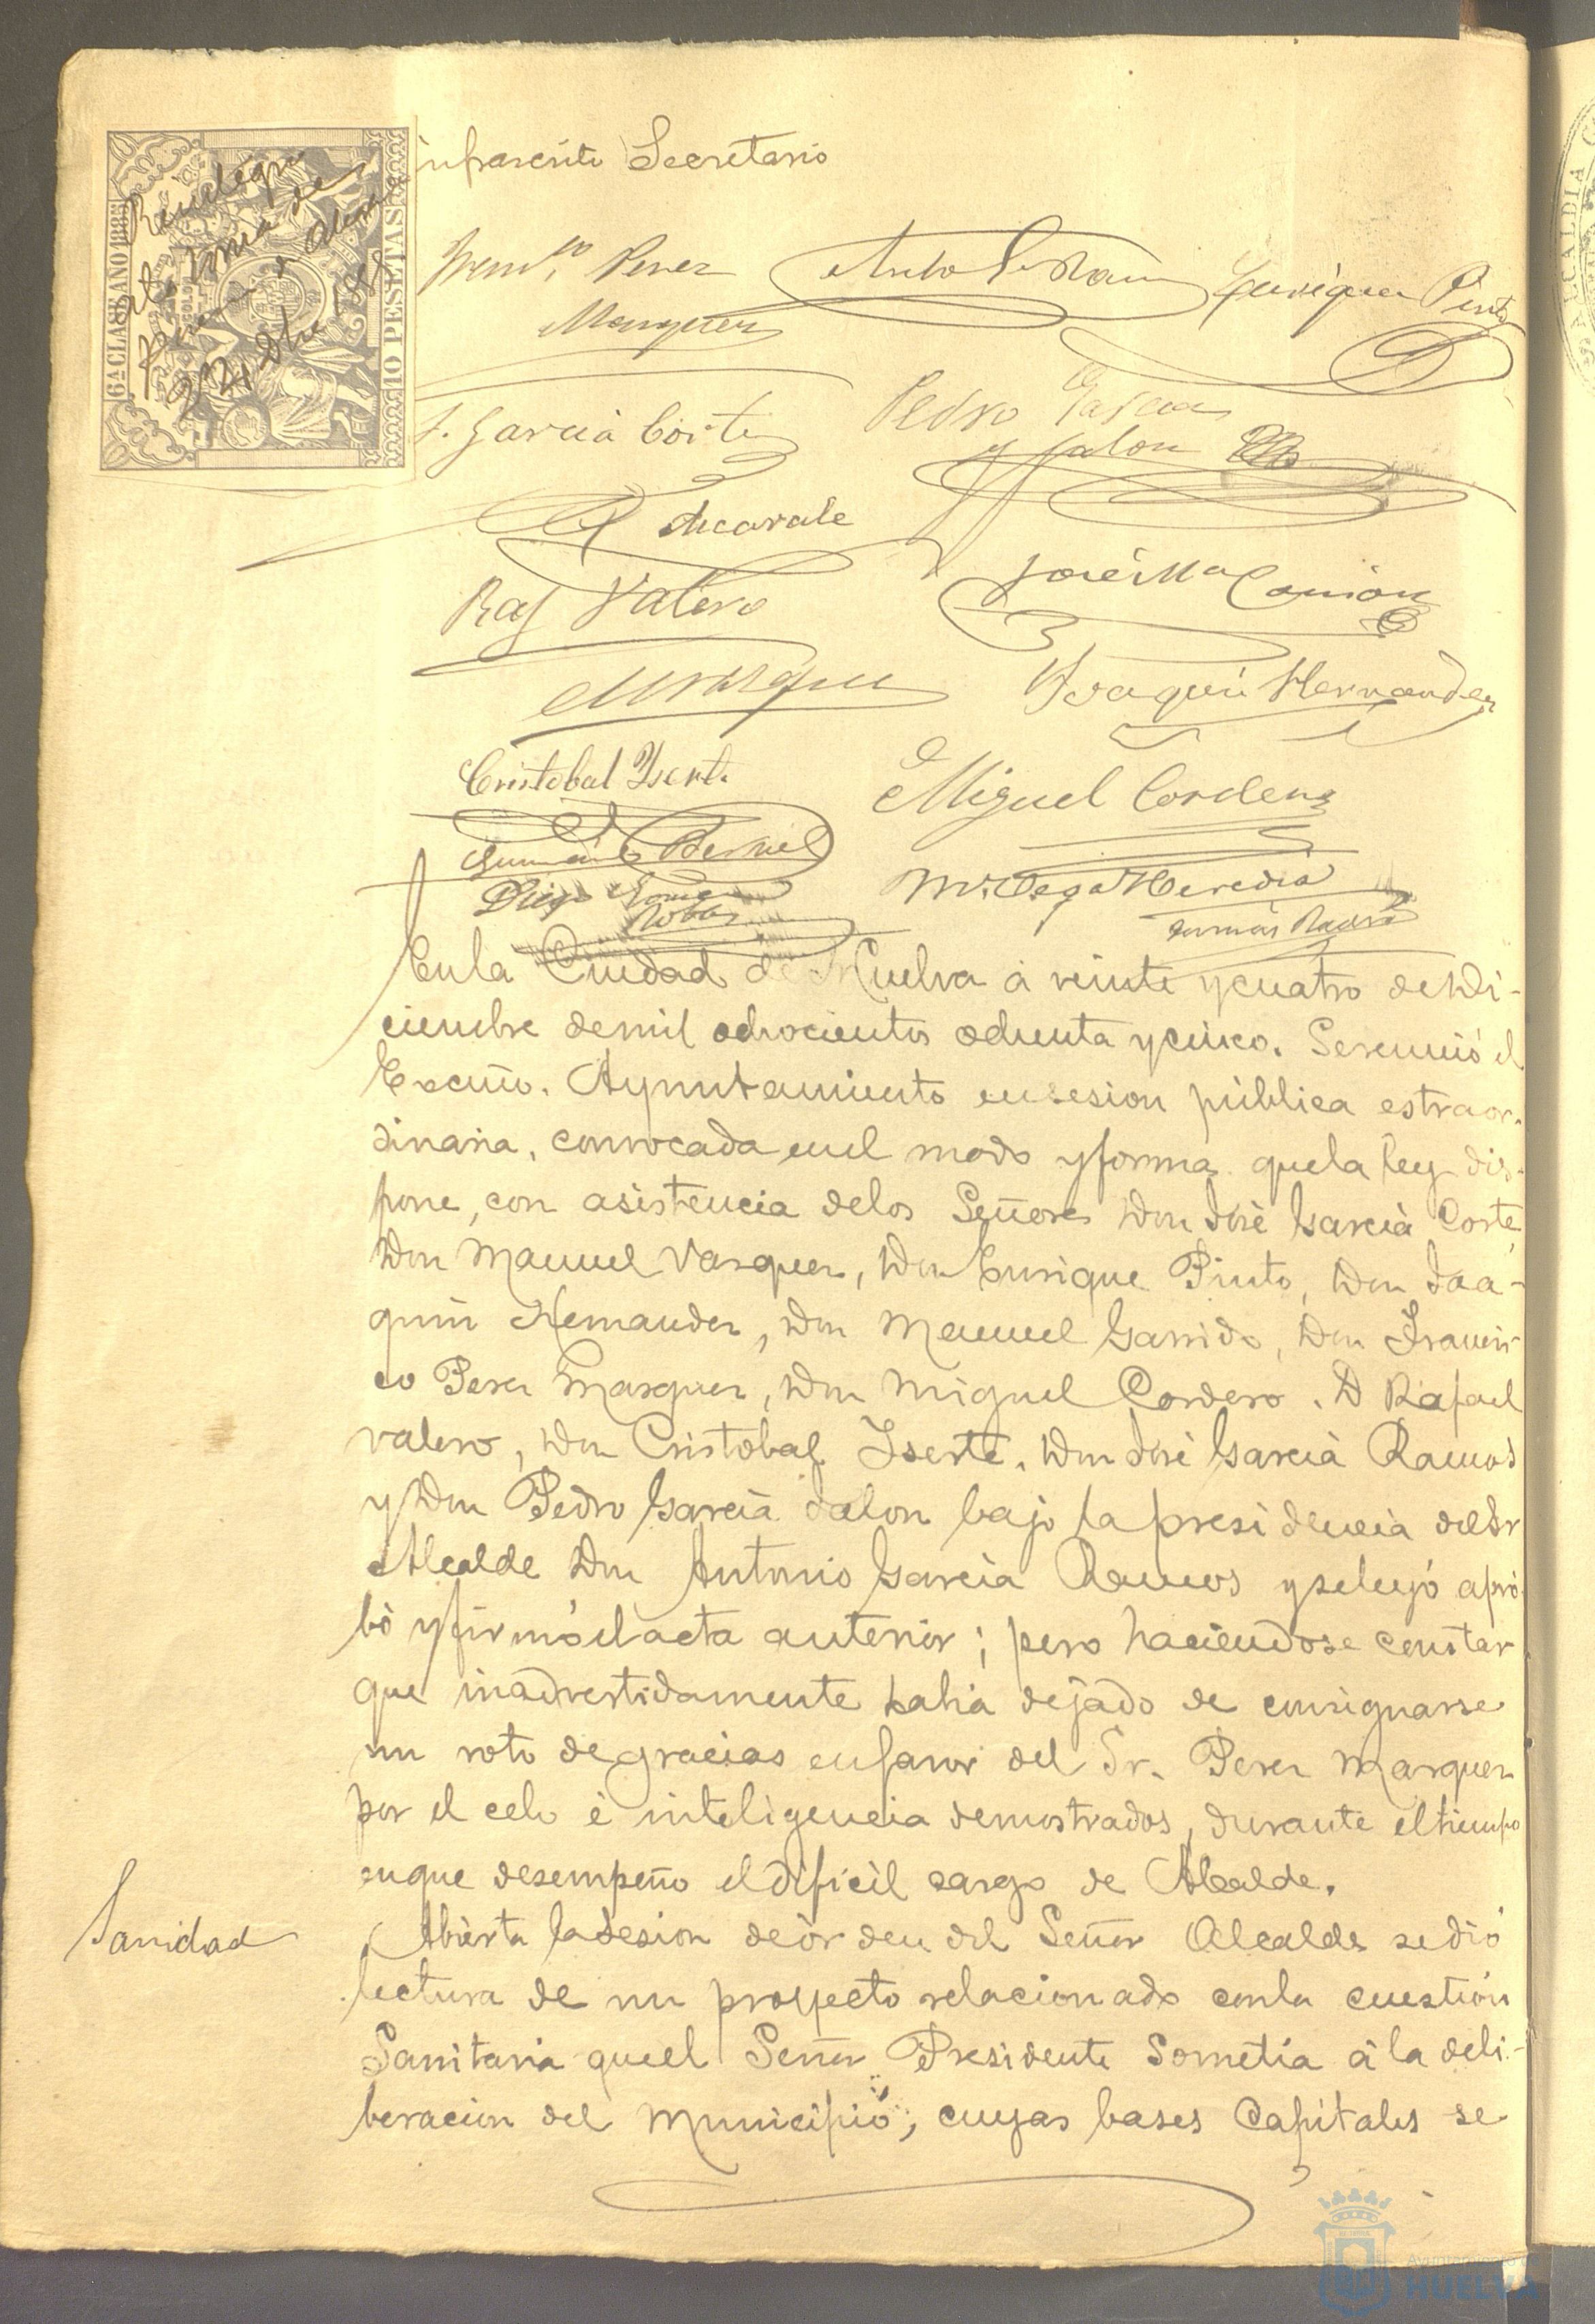 infrascrito Secretario
6ª CLASE AÑO 1885
10 PESETAS
Perez
Marquez
Enrique Pinto
J. Garcia Corte
Pedro Garcia
y Jalon
Raf Valero
José Mª
Vazquez
Joaquin Hernandez
Cristobal Yserte
Miguel Cordero
Bernal
Diego Gomez
Robles
M. Vega Heredia
En la Ciudad de Huelva á veinte y cuatro de Di-
ciembre de mil ochocientos ochenta y cinco. Se reunió el
Excmo. Ayuntamiento en sesion pública estraor-
dinaria, convocada en el modo y forma que la ley dis-
pone, con asistencia de los Señores Don José Garcia Corte,
Don Manuel Vasquez, Don Enrique Pinto, Don Joa-
quin Hernandez, Don Manuel Garrido, Don Francis-
co Perez Marquez, Don Miguel Cordero. D Rafael
valero, Don Cristobal Iserte. Don José Garcia Ramos
y Don Pedro Garcia Jalon bajo la presidencia del Sr
Alcalde Don Antonio Garcia Ramos y se leyó apro-
bó y firmó el acta anterior; pero haciendose constar
que inadvertidamente habia dejado de consignarse
un voto de gracias en favor del Sr. Perez Marquez
por el celo é inteligencia demostrados, durante el tiempo
en que desempeño el dificil cargo de Alcalde.
Sanidad
Abierta la sesion de órden del Señor Alcalde se dió
lectura de un proyecto relacionado con la cuestión
Sanitaria que el Señor Presidente Sometia á la deli-
beracion del Municipió, cuyas bases Capitales se
HUELVA